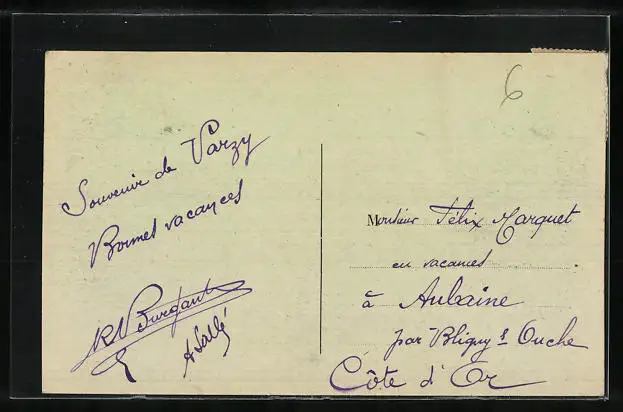 6
Souvenir de Varzy
Bonnes vacances
Monsieur Félix Marquet
en vacances
à Aubaine
par Bligny s Ouche
Côte d'Or